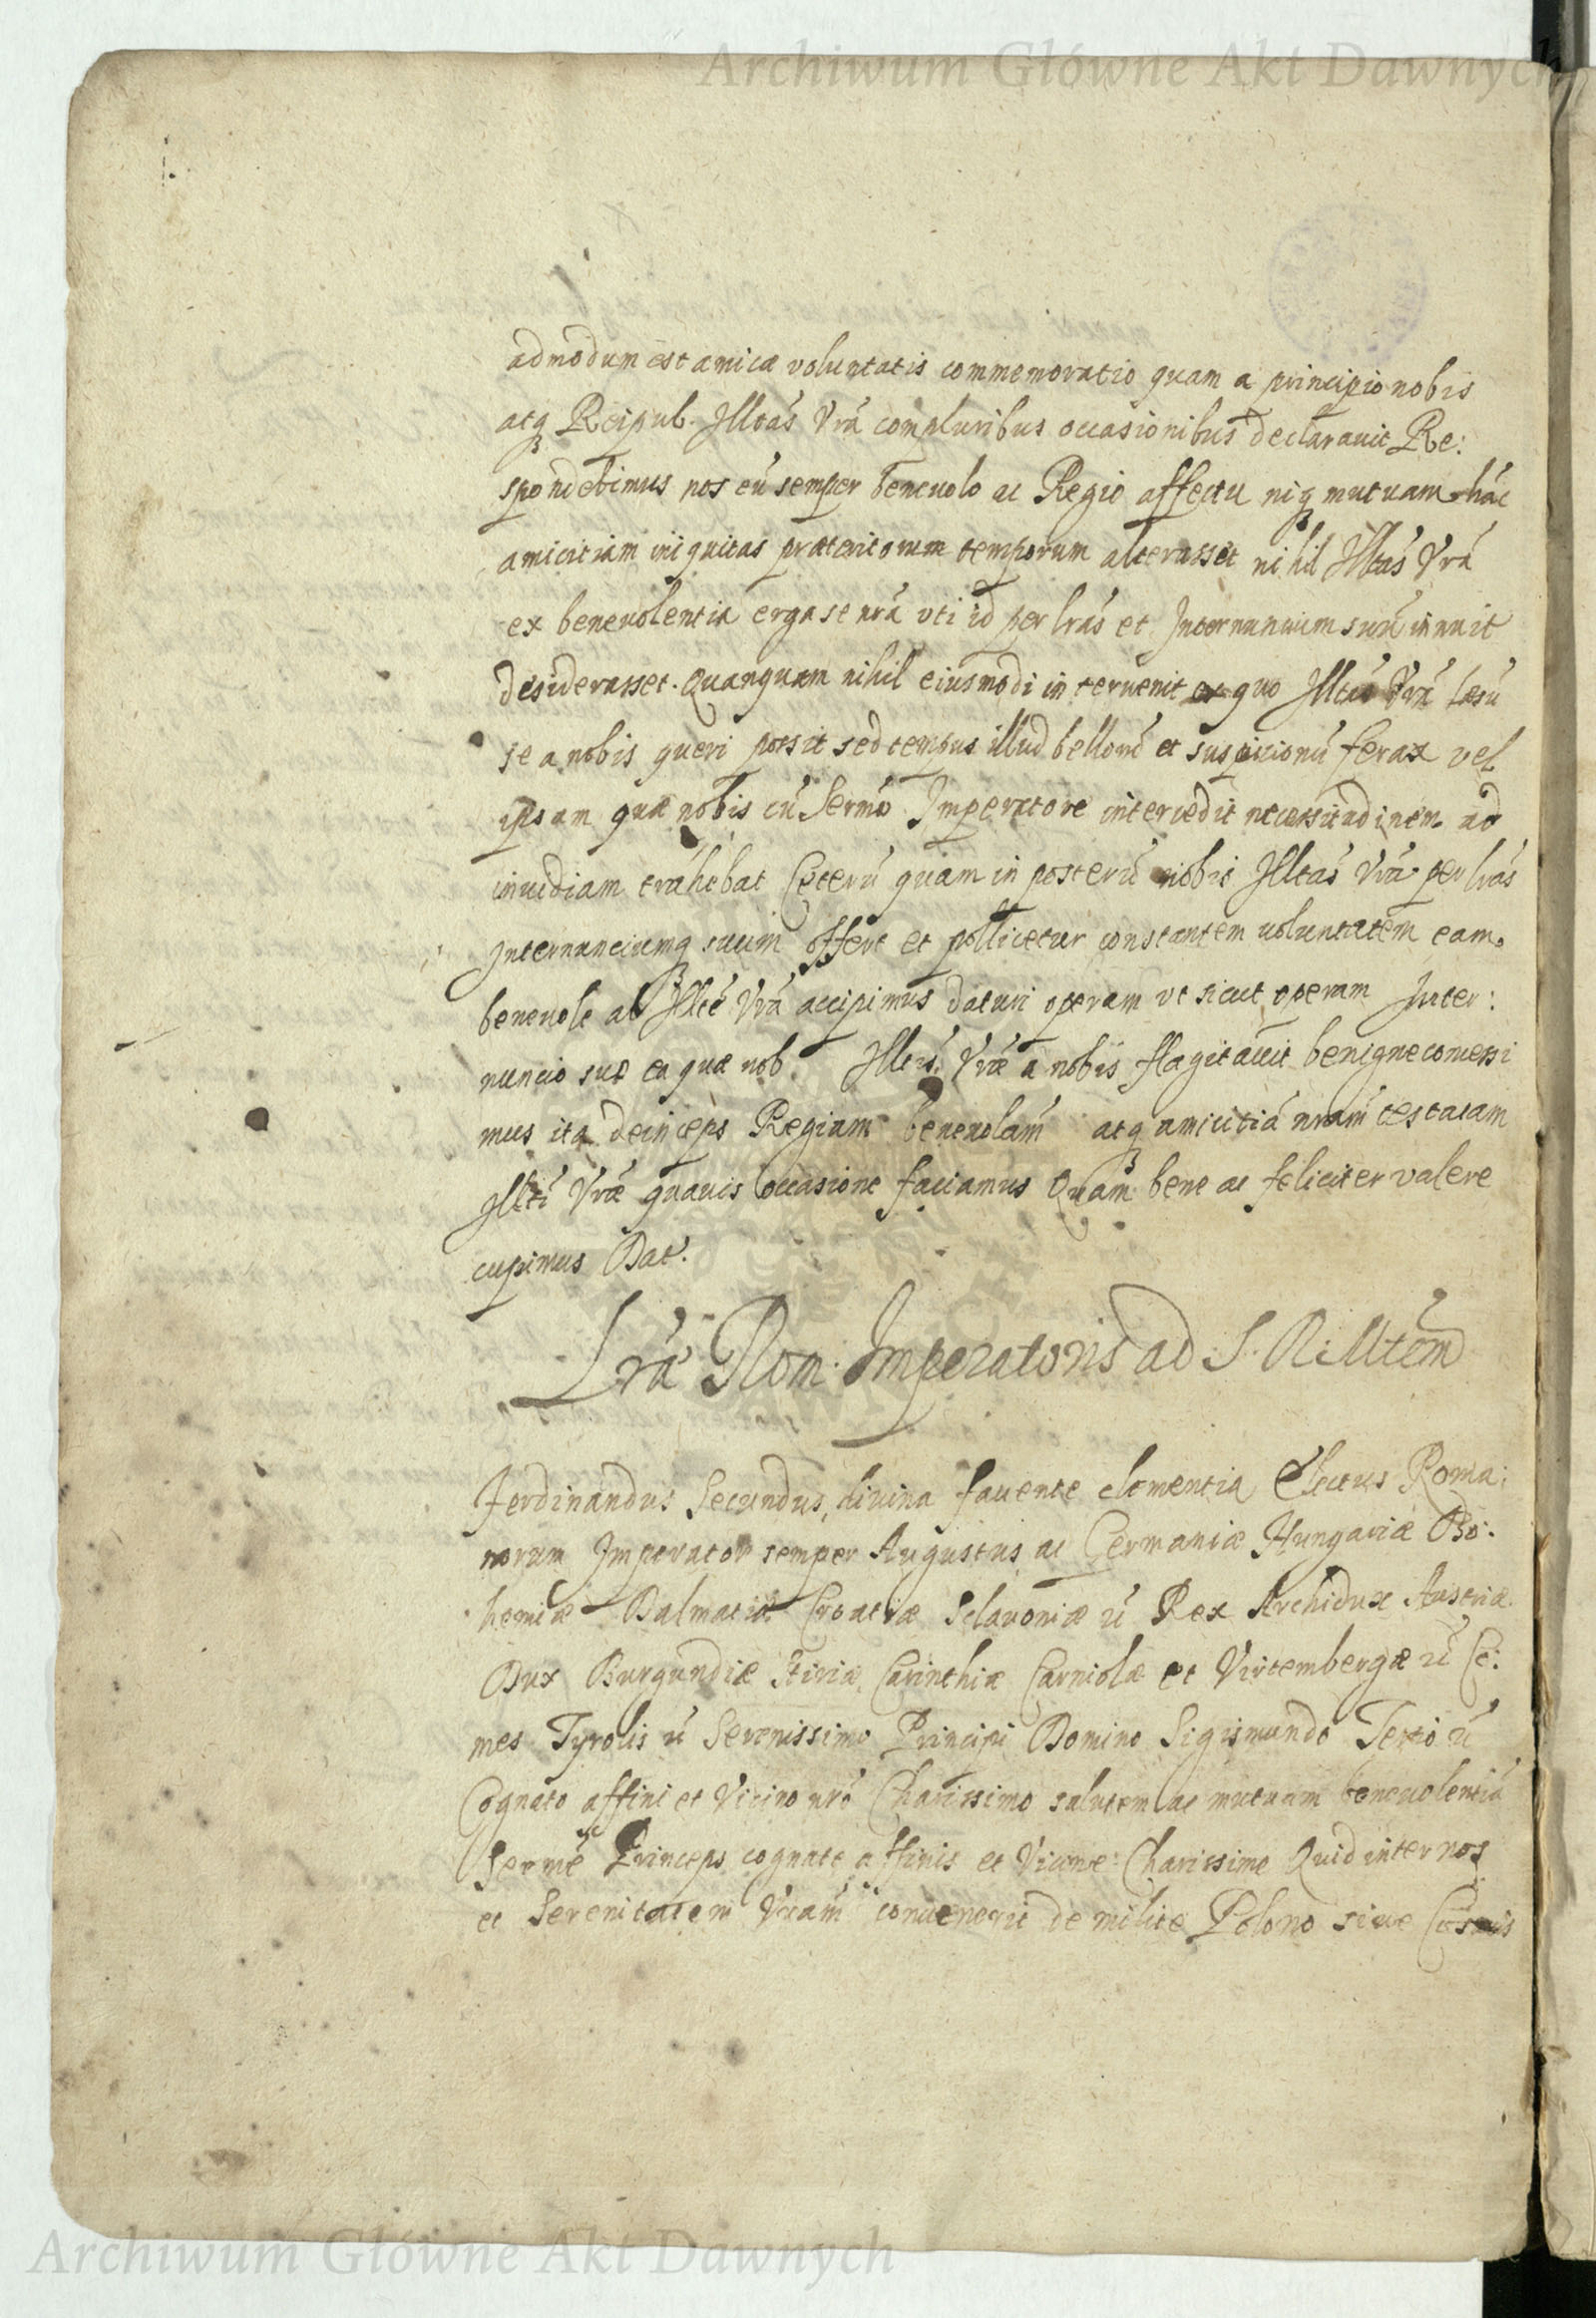 Archiwum Główne Akt Dawnych
admodum est amicæ voluntatis commemoratio quam a principio nobis
atq Reipub. Illtas Vrã compluribus occasionibus declarauit Re:
spondebimus nos eũ semper beneuolo ac Regio affectu niq mutuam hãc
amicitiam iniquitas præteritorum temporum alterasset nihil Illtas Vrã
ex beneuolentia erga se nrã vti id per lrãs et Internuncium suũ innuit
desiderasset. Quanquam nihil eiusmodi interuenit ex quo Illtas Vrã læsũ
se a nobis queri possit sed tempus illud bellorũ et suspicionũ ferax vel
ipsam quæ nobis cũ Sermo Imperatore intercedit necessitudinem ad
inuidiam trahebat Ceterũ quam in posterũ nobis Illtas Vrã per lrãs
Internunciumq suum offert et pollicetur constantem uoluntatem eam
beneuole ab Illte Vrã accipimus daturi operam vt sicut operam Inter:
nuncio suo ea quæ nob. Illtis Vræ a nobis flagitauit benigne concessi
mus ita deinceps Regiam beneuolam atq amicitiã nram testatam
Illti Vræ quauis occasione faciamus Quam bene ac feliciter valere
cupimus Dat.
Lrã Rom. Imperatoris ad S. R. Mttem
Ferdinandus Secundus, diuina fauente clementia Electus Roma:
norum Imperator semper Augustus ac Germaniæ Hungariæ Bo:
hemiæ Dalmatiæ Croatiæ Sclauoniæ ũ Rex Archidux Austriæ
Dux Burgundiæ Stiriæ, Carinthiæ Carniolæ et Virtembergæ ũ Co:
mes Tyrolis ũ Serenissimo Principi Domino Sigismundo Tertio ũ
Cognato affini et Vicino nrõ Charissimo salutem ac mutuam beneuolentiã
Serme Princeps cognate affinis et Vicine Charissime Quid inter nos
et Serenitatem Vram conuenerit de milite Polono siue
Archiwum Główne Akt Dawnych